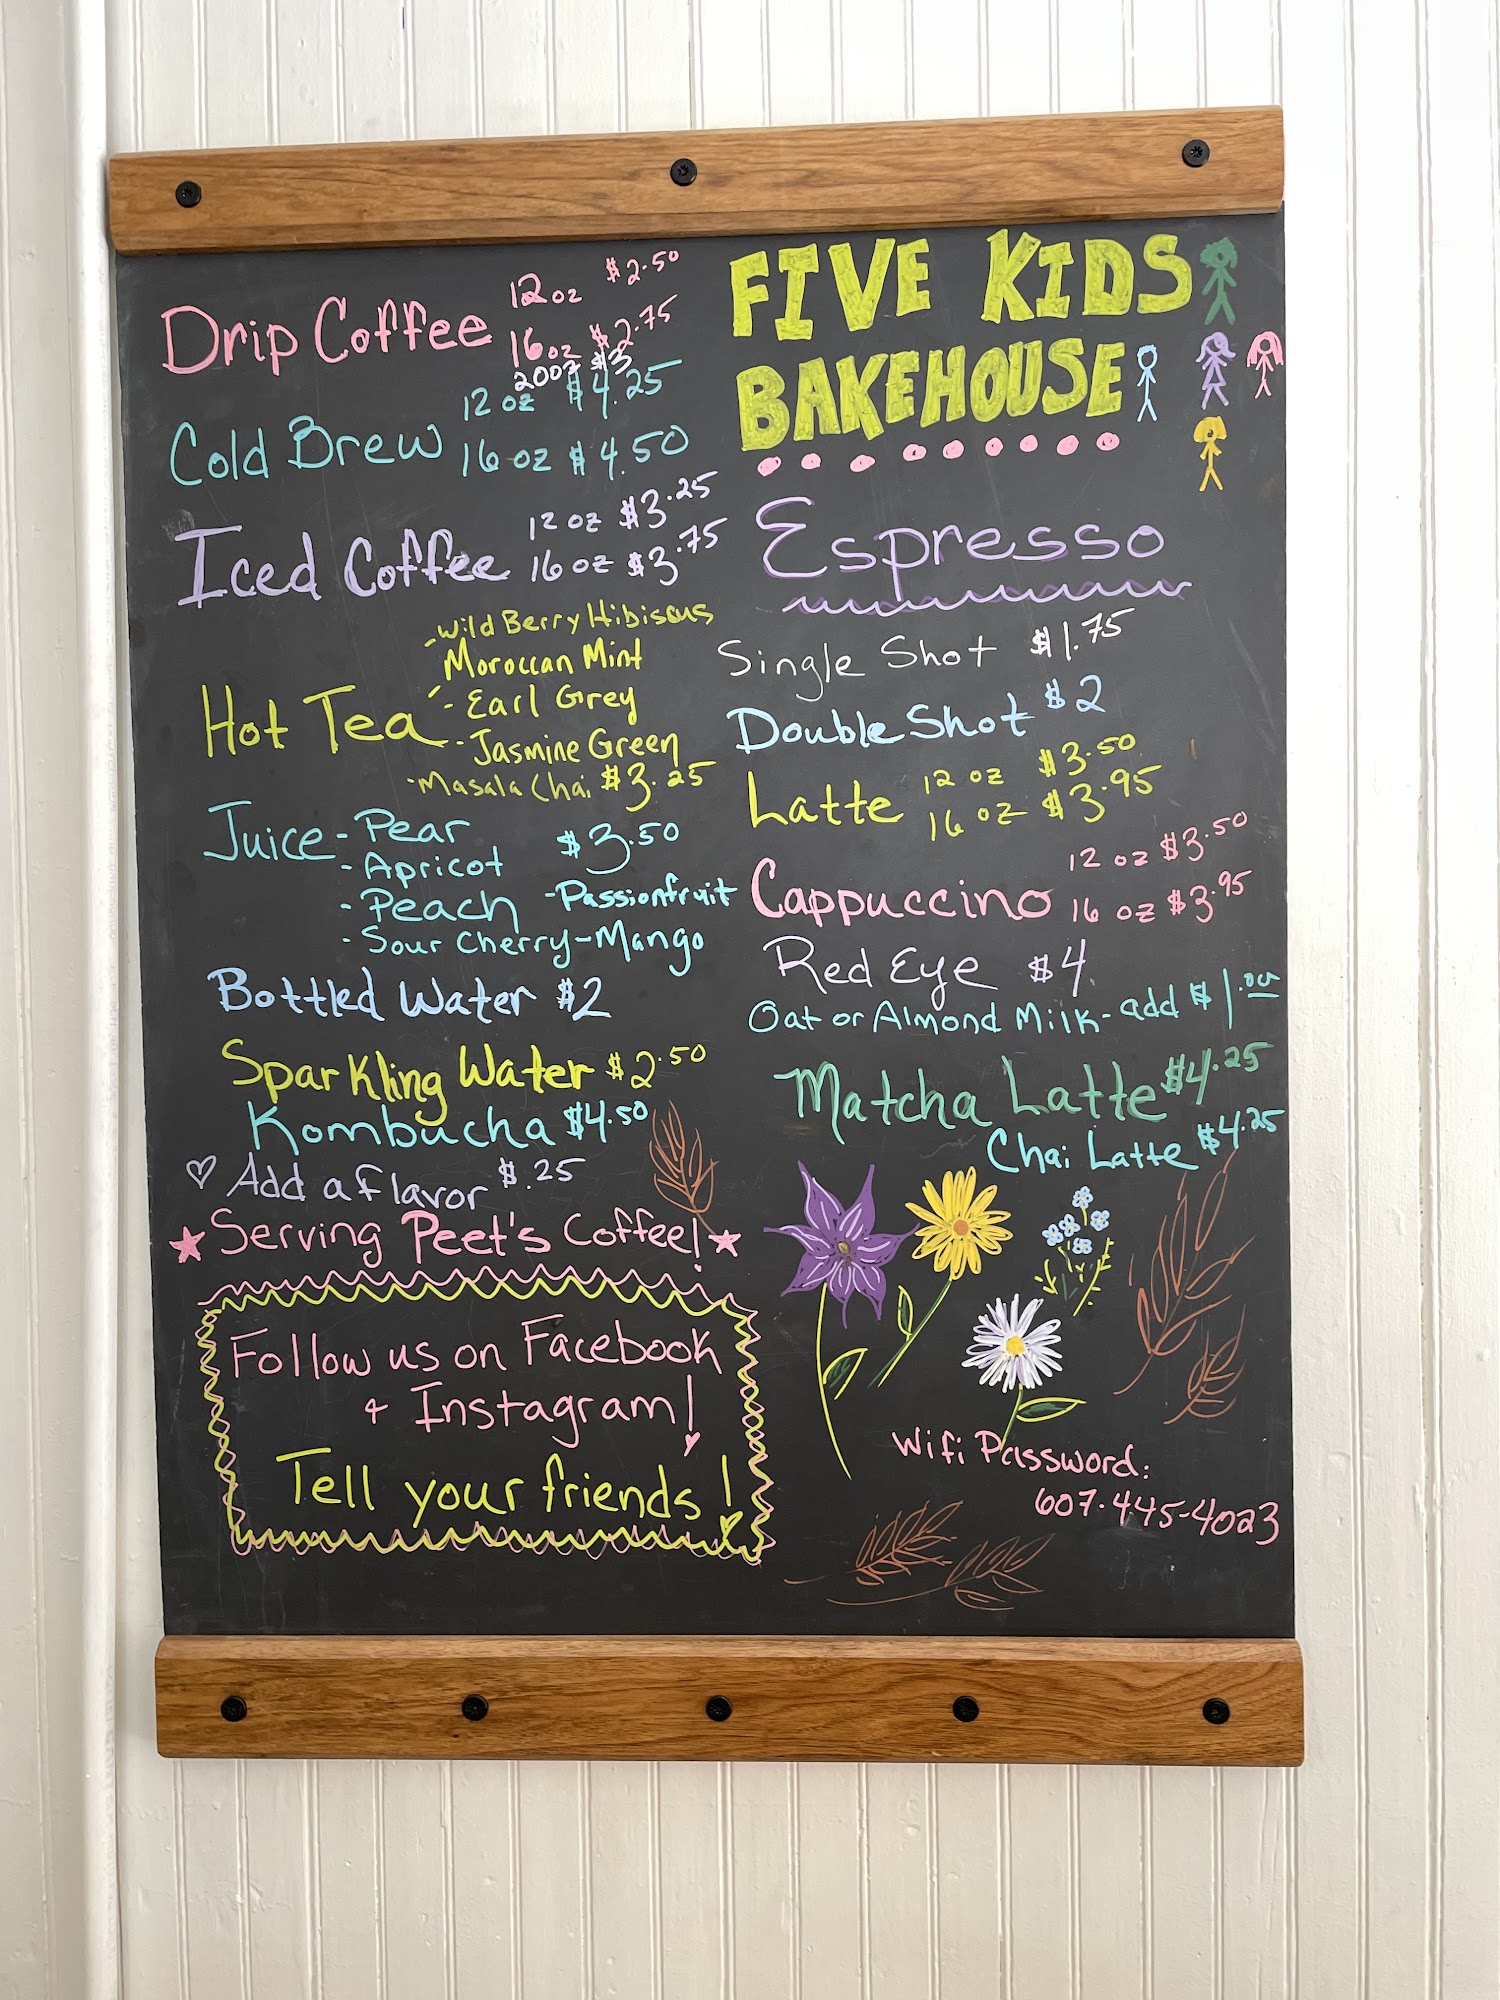 Drip Coffee 12oz $2.50
16oz $2.75
20oz $3
Cold Brew 12 oz $4.25
16 oz $4.50
Iced Coffee 12 oz $3.25
16 oz $3.75
Hot Tea - Wild Berry Hibiscus
- Moroccan Mint
- Earl Grey
- Jasmine Green
- Masala Chai $3.25
Juice - Pear $3.50
- Apricot
- Peach - Passionfruit
- Sour Cherry - Mango
Bottled Water $2
Sparkling Water $2.50
Kombucha $4.50
Add a flavor $.25
Serving Peet's Coffee!
Follow us on Facebook
+ Instagram!
Tell your friends!
FIVE KIDS
BAKEHOUSE
Espresso
Single Shot $1.75
Double Shot $2
Latte 12 oz $3.50
16 oz $3.95
Cappuccino 12 oz $3.50
16 oz $3.95
Red Eye $4
Oat or Almond Milk - add $1.00
Matcha Latte $4.25
Chai Latte $4.25
Wifi Password:
607-445-4023